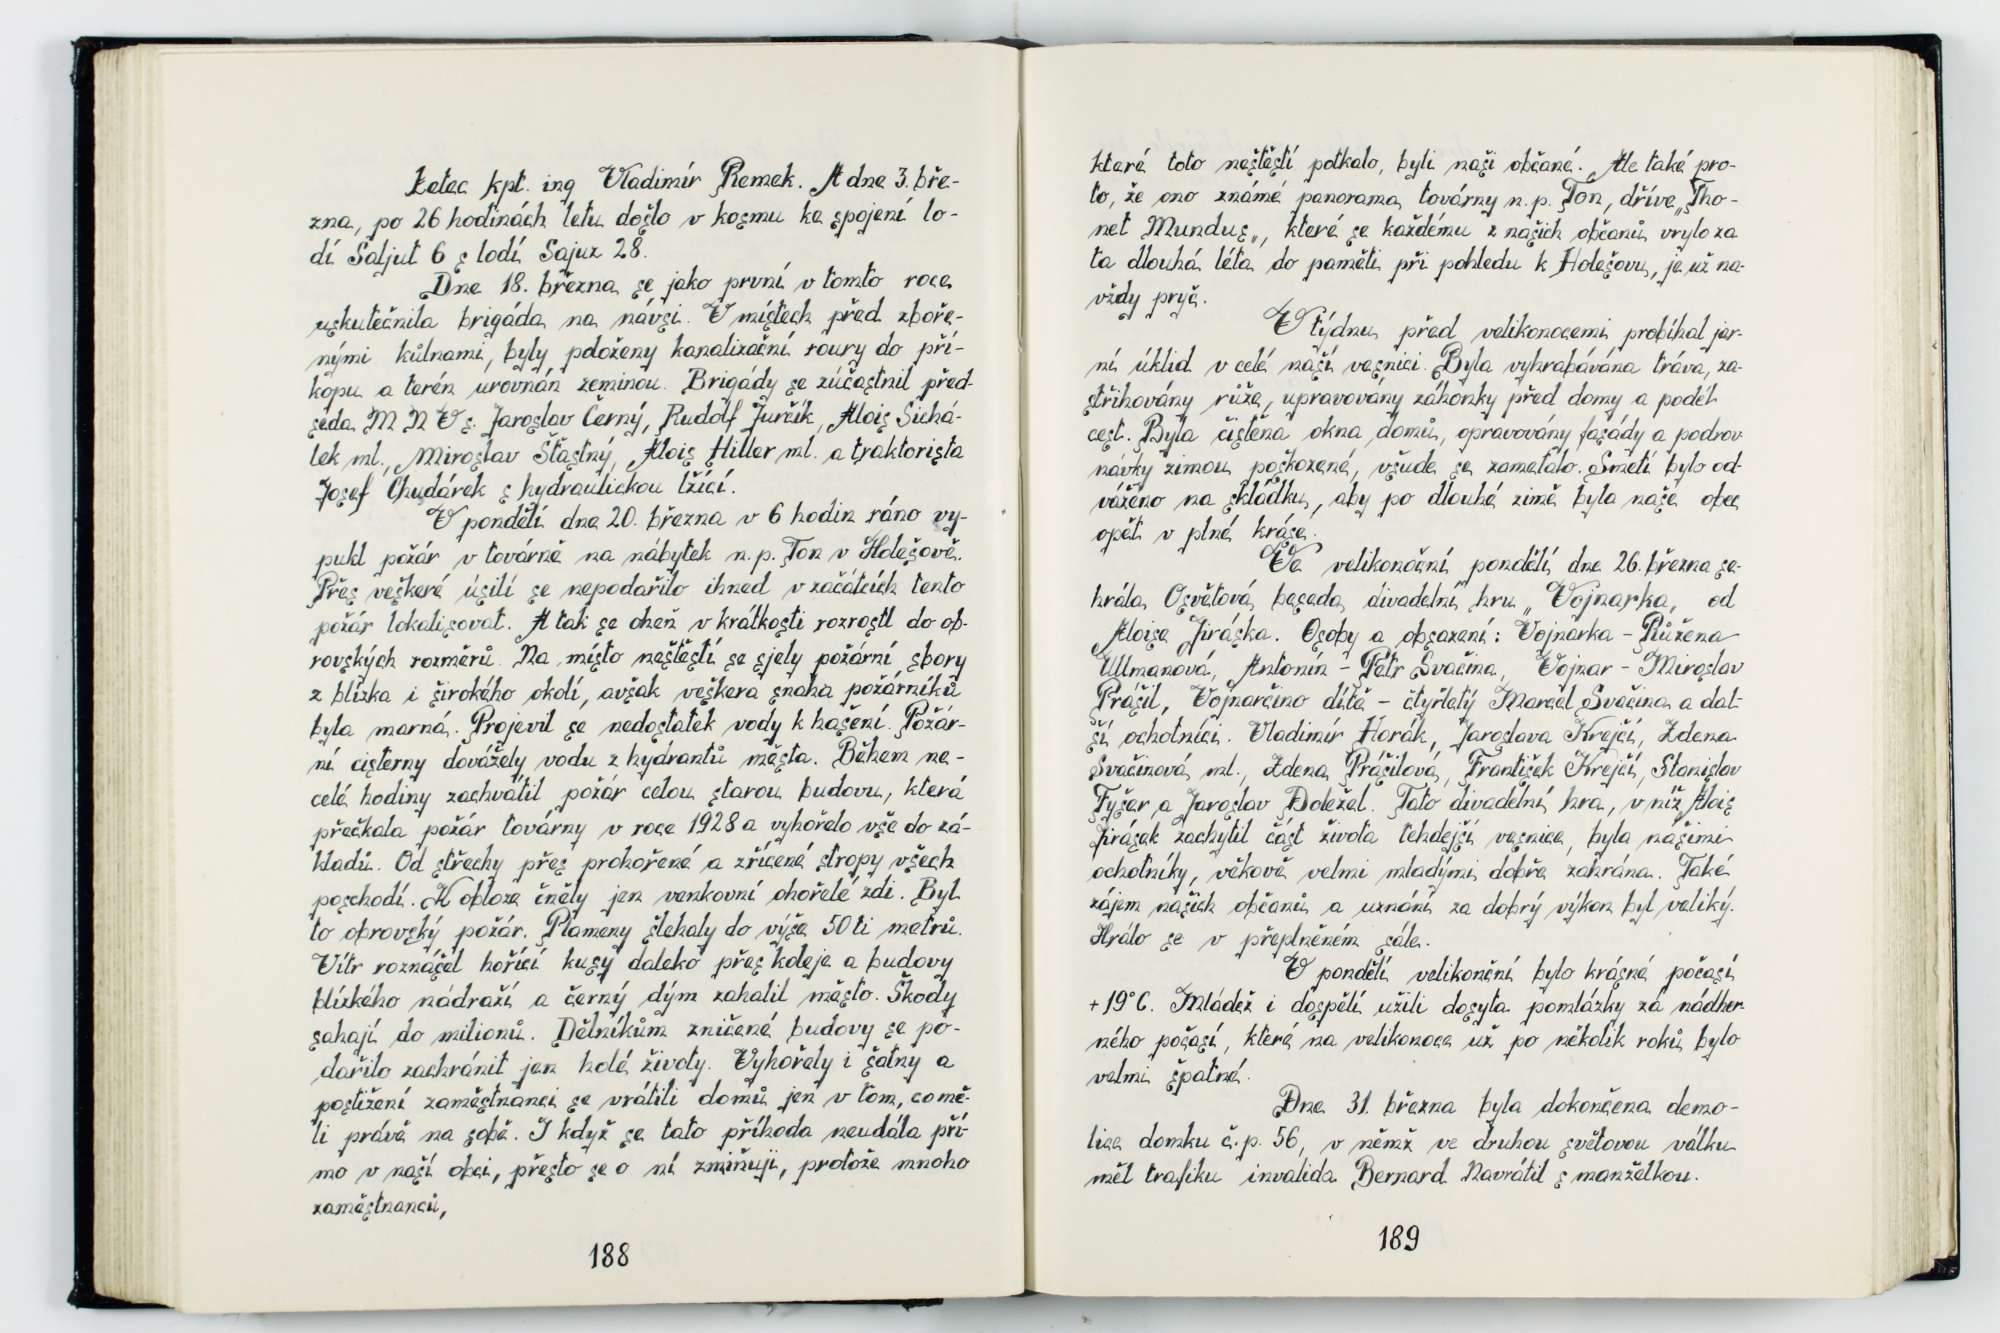 Letec kpt. ing Vladimír Remek. A dne 3. bře-
zna, po 26 hodinách letu došlo v kosmu ke spojení lo-
dí Saljut 6 s lodí Sajuz 28.
Dne 18. března se jako první v tomto roce
uskutečnila brigáda na návsi. V místech před zboře-
nými kůlnami, byly položeny kanalizační roury do pří-
kopu a terén urovnán zeminou. Brigády se zúčastnil před-
seda M N V s. Jaroslav Černý, Rudolf Jurčík, Alois Sichá-
lek ml., Miroslav Šťastný, Alois Hiller ml. a traktorista
Josef Chudárek s hydraulickou lžící.
V pondělí dne 20. března v 6 hodin ráno vy-
pukl požár v továrně na nábytek n.p. Ton v Holešově.
Přes veškeré úsilí se nepodařilo ihned v začátcích tento
požár lokalisovat. A tak se oheň v krátkosti rozrostl do ob-
rovských rozměrů. Na místo neštěstí se sjely požární sbory
z blízka i širokého okolí, avšak veškera snaha požárníků
byla marná. Projevil se nedostatek vody k hašení. Požár-
ní cisterny dovážely vodu z hydrantů města. Během ne-
celé hodiny zachvátil požár celou starou budovu, která
přečkala požár továrny v roce 1928 a vyhořelo vše do zá-
kladů. Od střechy přes prohořené a zřícené stropy všech
poschodí. K obloze čněly jen venkovní ohořelé zdi. Byl
to obrovský požár. Plameny šlehaly do výše 50ti metrů.
Vítr roznášel hořící kusy daleko přes koleje a budovy
blízkého nádraží a černý dým zahalil město. Škody
sahají do milionů. Dělníkům zničené budovy se po-
dařilo zachránit jen holé životy. Vyhořely i šatny a
postižení zaměstnanci se vrátili domů jen v tom, co mě-
li právě na sobě. I když se tato příhoda neudála pří-
mo v naší obci, přesto se o ní zmiňuji, protože mnoho
zaměstnanců,
188
které toto neštěstí potkalo, byli naši občané. Ale také pro-
to, že ono známé panorama továrny n.p. Ton, dříve „Tho-
net Mundus„, které se každému z našich občanů vrylo za
ta dlouhá léta do paměti při pohledu k Holešovu, je už na-
vždy pryč.
V týdnu před velikonocemi probíhal jar-
ní úklid v celé naší vesnici. Byla vyhrabávána tráva, za-
střihovány růže, upravovány záhonky před domy a podél
cest. Byla čištěna okna domů, opravovány fasády a podrov-
návky zimou poškozené, všude se zametalo. Smetí bylo od-
váženo na skládku, aby po dlouhé zimě byla naše obec
opět v plné kráse.
Ve velikonoční pondělí, dne 26. března se-
hrála Osvětová beseda divadelní hru „Vojnarka„ od
Aloise Jiráska. Osoby a obsazení: Vojnarka - Růžena
Ullmanová, Antonín - Petr Svačina, Vojnar - Miroslav
Prášil, Vojnarčino dítě - čtyřletý Marcel Svačina a dal-
ší ochotníci. Vladimír Horák, Jaroslava Krejčí, Zdena
Svačinová ml., Zdena Prášilová, František Krejčí, Stanislav
Fyšer a Jaroslav Doležel. Tato divadelní hra, v níž Alois
Jirásek zachytil část života tehdejší vesnice, byla našimi
ochotníky, věkově velmi mladými dobře zahrána. Také
zájem našich občanů a uznání za dobrý výkon byl veliký.
Hrálo se v přeplněném sále.
V pondělí velikonční bylo krásné počasí
+ 19°C. Mládež i dospělí užili dosyta pomlázky za nádher-
ného počasí, které na velikonoce už po několik roků bylo
velmi špatné.
Dne 31. března byla dokončena demo-
lice domku č.p. 56, v němž ve druhou světovou válku
měl trafiku invalida Bernard Navrátil s manželkou.
189